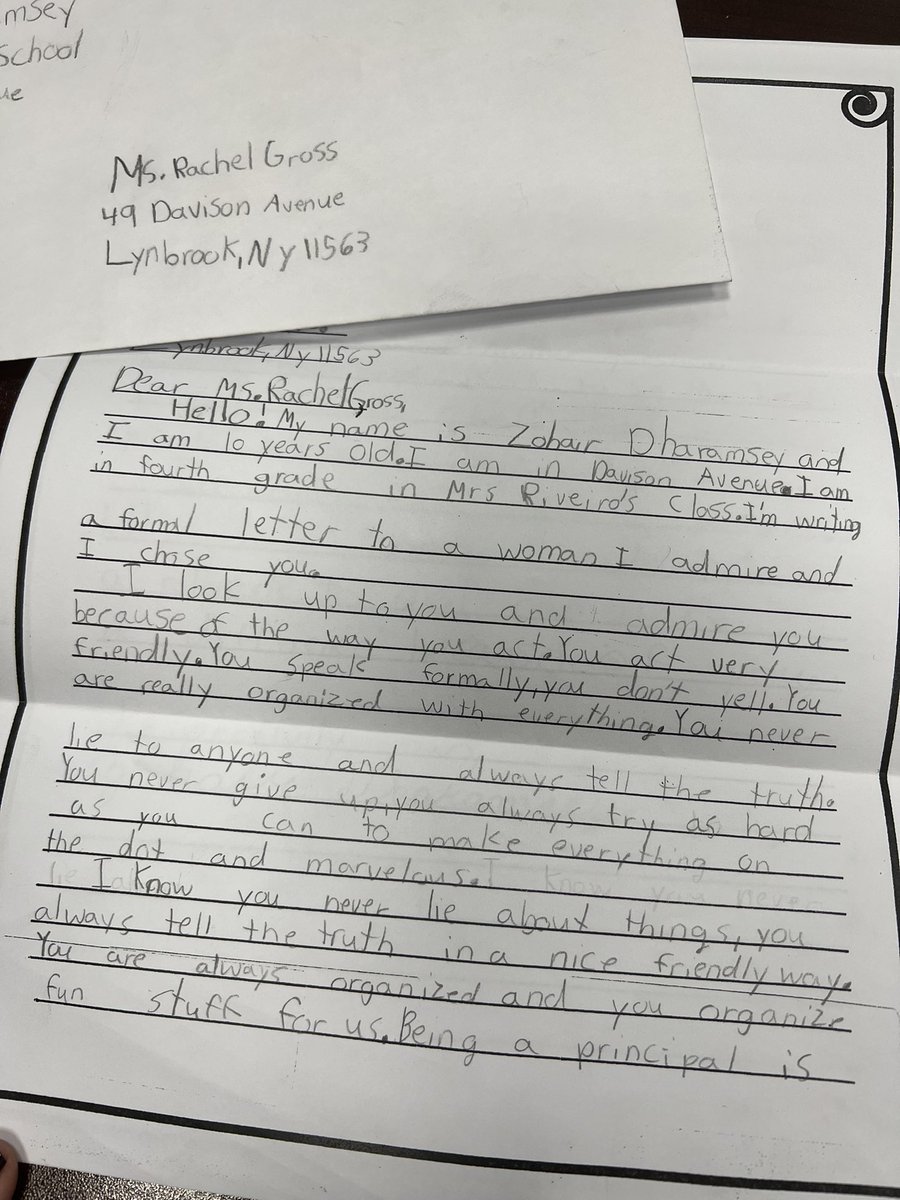 msey
School
ue
Ms. Rachel Gross
49 Davison Avenue
Lynbrook, Ny 11563
ynbrook, Ny 11563
Dear Ms. Rachel Gross,
Hello! My name is Zohair Dharamsey and
I am 10 years old. I am in Davison Avenue. I am
in fourth grade in Mrs Riveiro's Class. I'm writing
a formal letter to a woman I admire and
I chose you.
I look up to you and admire you
because of the way you act. You act very
friendly. You speak formally, you don't yell. You
are really organized with everything. You never
lie to anyone and always tell the truth.
You never give up, you always try as hard
as you can to make everything on
the dot and marvelous. I know you never
lie
I know you never lie about things, you
always tell the truth in a nice friendly way.
You are always organized and you organize
fun stuff for us. Being a principal is